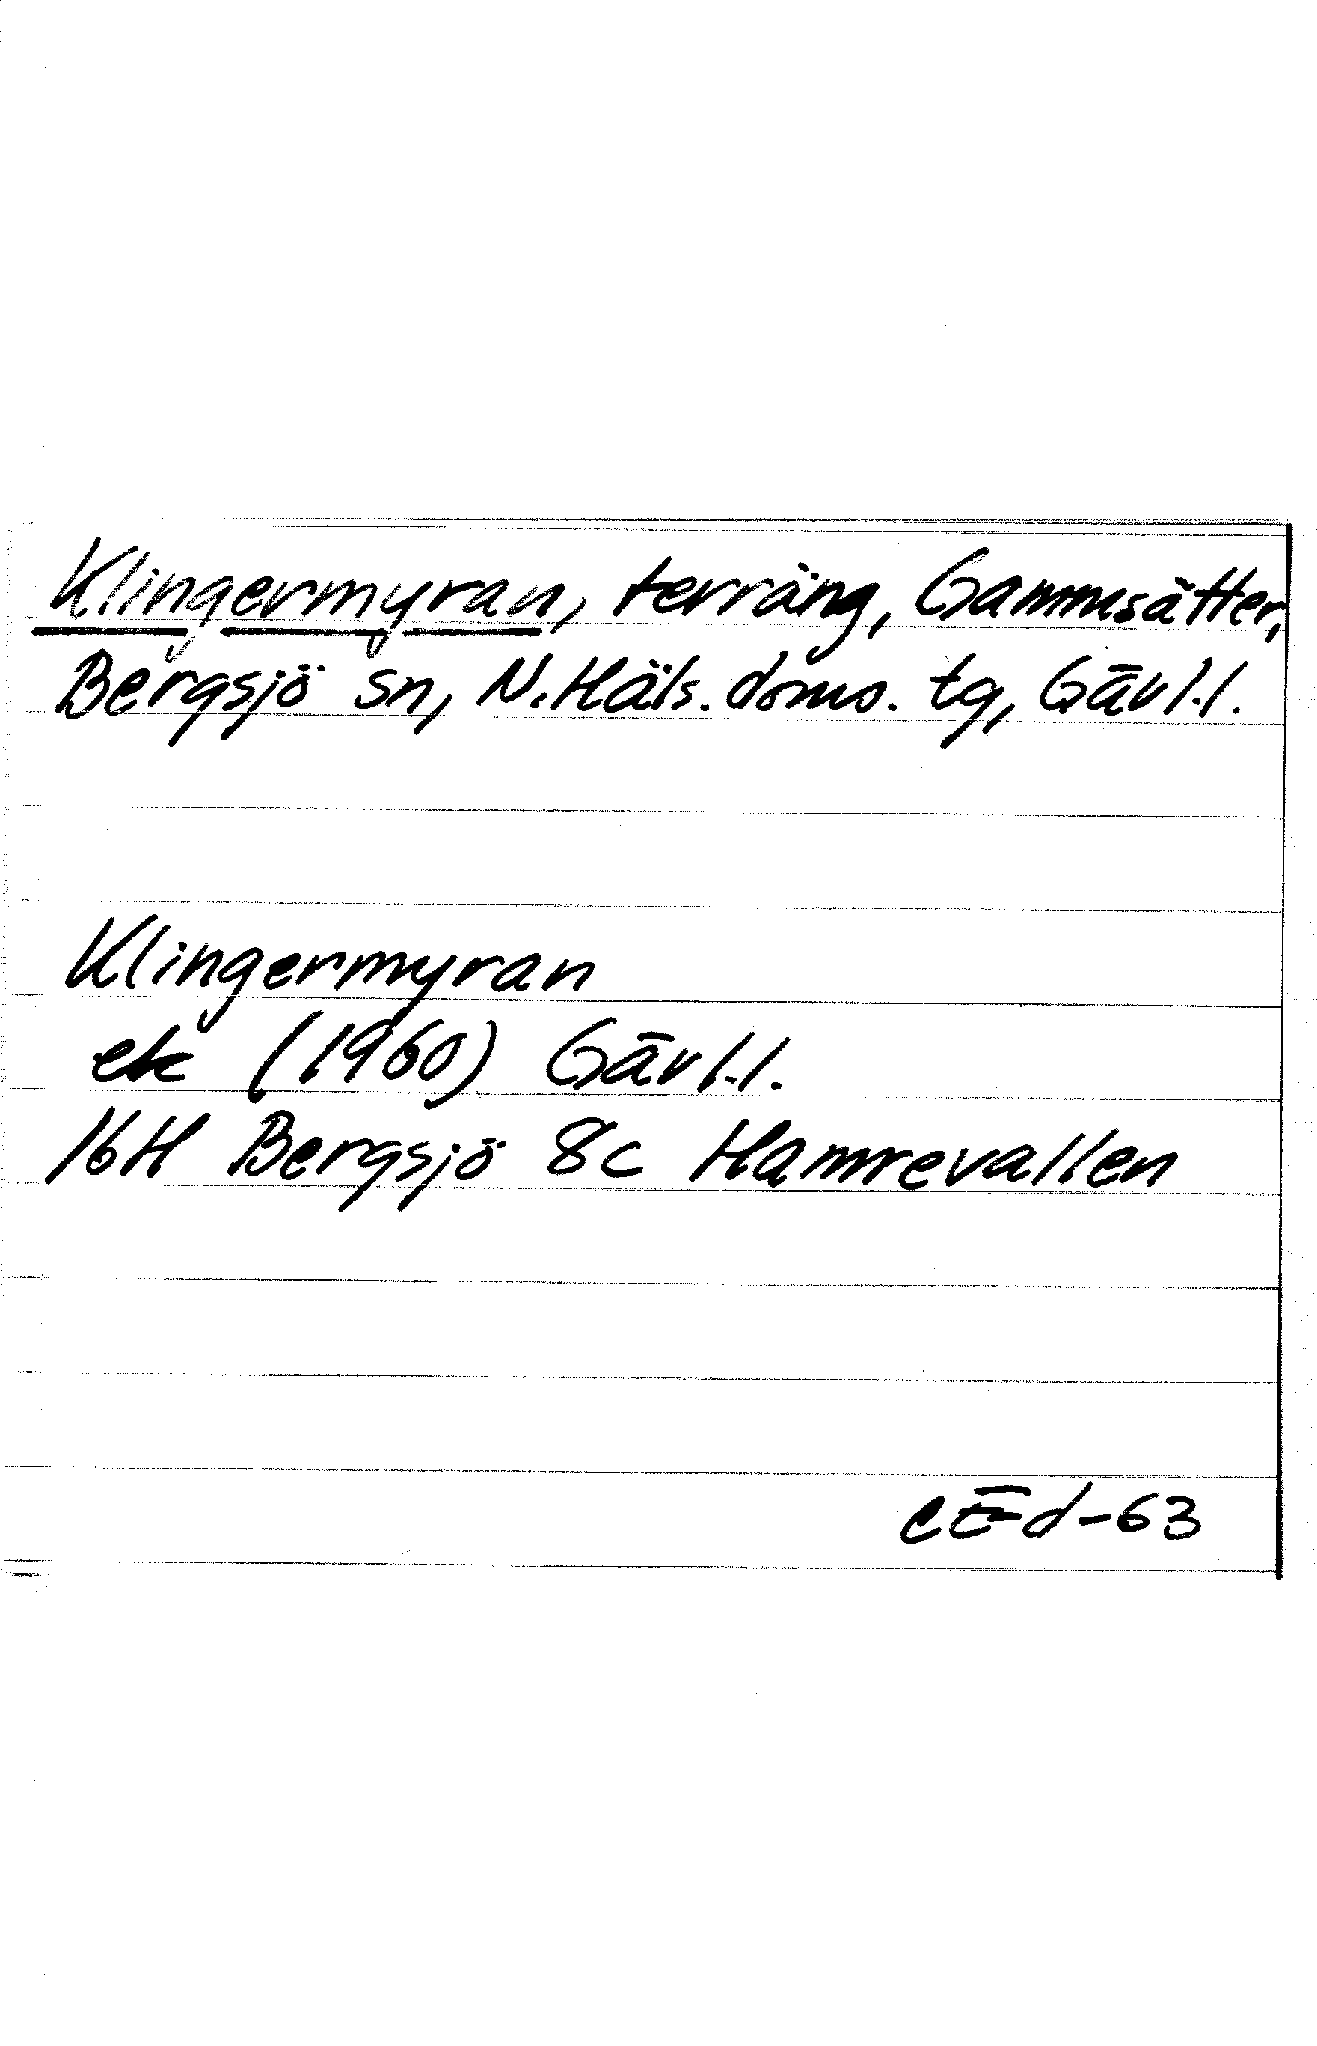 Klingermyran, terräng, Gammsätter,
Bergsjö sn, N. Häls. doms. tg, Gävl. l.
Klingermyran
ek (1960) Gävl. l.
16H Bergsjö 8c Hamrevallen
CEd-63